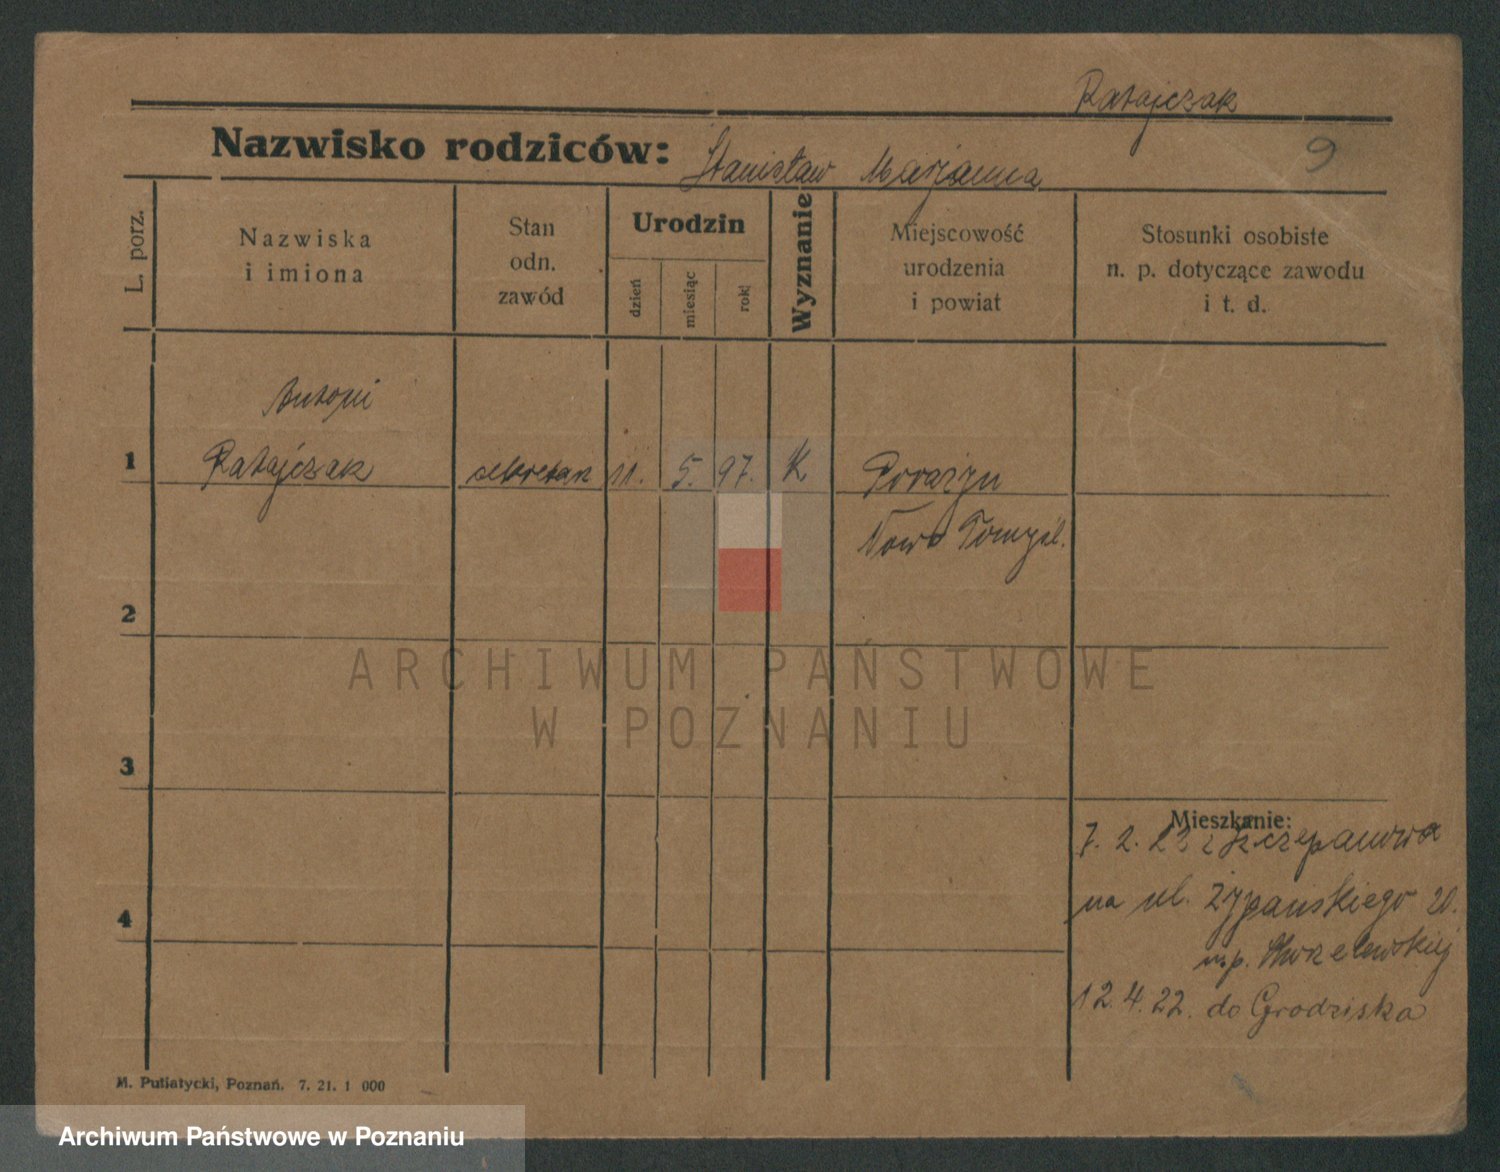 Ratajczak
Nazwisko rodziców: Stanisław Marjanna
9
L. porz.
Nazwiska
i imiona
Stan
odn.
zawód
Urodzin
dzień
miesiąc
rok
Wyznanie
Miejscowość
urodzenia
i powiat
Stosunki osobiste
n. p. dotyczące zawodu
i t. d.
Antoni
1 Ratajczak sekretarz 11. 5. 97. K Porażyn
Nowo Tomyśl.
2
3
4
Mieszkanie:
7. 2. 22 z Szczepanowa
na ul. Żypańskiego 20.
u p.
12. 4. 22. do Grodziska
M. Putiatycki, Poznań. 7. 21. 1 000
ARCHIWUM PAŃSTWOWE
W POZNANIU
Archiwum Państwowe w Poznaniu